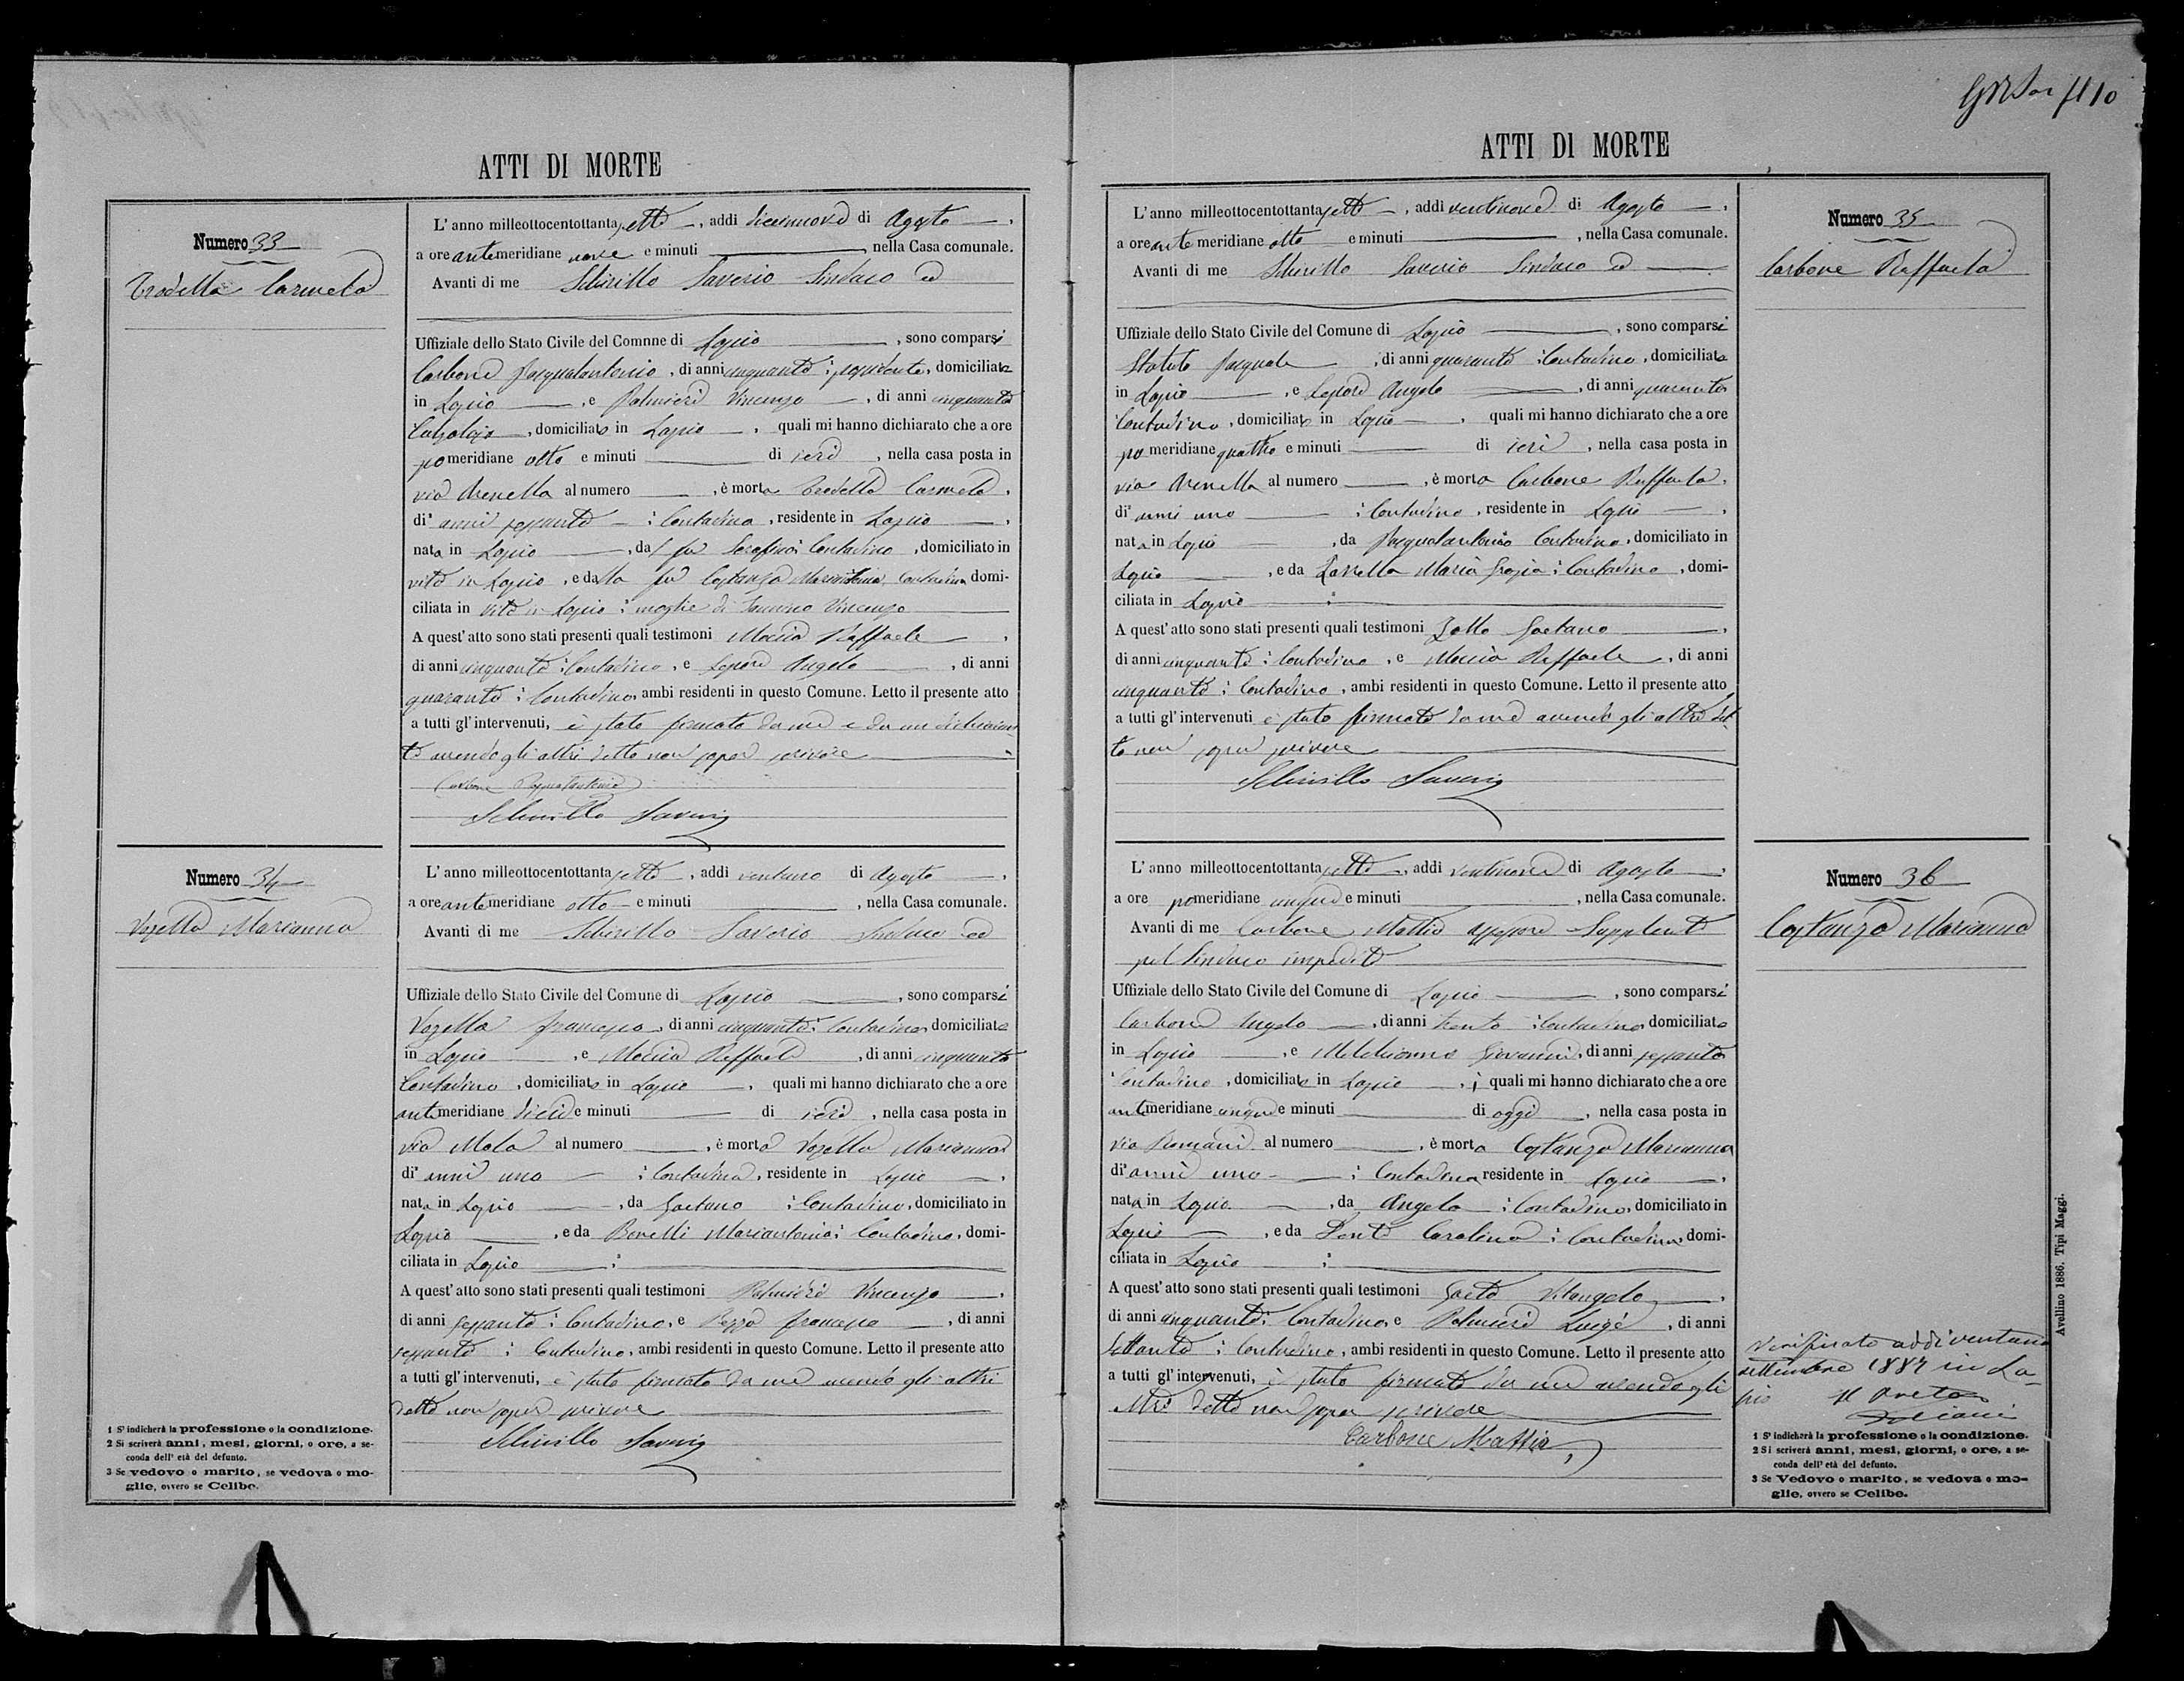 ATTI DI MORTE
Numero 33
Carmela
L'anno milleottocentottantasette, addì diecinnove di Agosto,
a ore antemeridiane nove e minuti, nella Casa comunale.
Avanti di me Schirillo Saverio Sindaco ed
Uffiziale dello Stato Civile del Comnne di Lapio, sono comparsi
Carbone Pasqualantonio, di anni cinquanta; possidente, domiciliato
in Lapio, e Palmieri Vincenzo, di anni cinquanta
Calzolajo, domiciliato in Lapio, quali mi hanno dichiarato che a ore
pomeridiane otto e minuti di ieri, nella casa posta in
via Arenella al numero, è morta Carmela,
di² anni sessanta; Contadina, residente in Lapio,
nata in Lapio, dal fu Serafino; Contadino, domiciliato in
vita in Lapio, e dalla fu Costanza Contadina domi-
ciliata in vita in Lapio; moglie di Vincenzo
A quest'atto sono stati presenti quali testimoni Moccia Raffaele,
di anni cinquanta; Contadino, e Lepore Angelo, di anni
quaranta; Contadino, ambi residenti in questo Comune. Letto il presente atto
a tutti gl'intervenuti, è stato firmato da me e da un dichiaran-
te avendo gli altri detto non saper scrivere
Carbone Pasqualantonio
Schirillo Saverio
Numero 34
Vozella Marianna
L'anno milleottocentottantasette, addì ventuno di Agosto,
a ore antemeridiane otto e minuti, nella Casa comunale.
Avanti di me Schirillo Saverio Sindaco ed
Uffiziale dello Stato Civile del Comune di Lapio, sono comparsi
Vozella Francesco, di anni cinquanta; Contadino, domiciliato
in Lapio, e Moccia Raffaele, di anni cinquanta
Contadino, domiciliato in Lapio, quali mi hanno dichiarato che a ore
antemeridiane dieci e minuti di ieri, nella casa posta in
via Mola al numero, è morta Vozella Marianna
di² anni uno; Contadina, residente in Lapio,
nata in Lapio, da Gaetano; Contadino, domiciliato in
Lapio, e da Mariantonia; Contadina, domi-
ciliata in Lapio;
A quest'atto sono stati presenti quali testimoni Palmieri Vincenzo,
di anni sessanta; Contadino, e Francesco, di anni
sessanta; Contadino, ambi residenti in questo Comune. Letto il presente atto
a tutti gl'intervenuti, è stato firmato da me avendo gli altri
detto non saper scrivere
Schirillo Saverio
1 S' indicherà la professione o la condizione.
2 Si scriverà anni, mesi, giorni, o ore, a se-
conda dell' età del defunto.
3 Se vedovo o marito, se vedova o mo-
glie, ovvero se Celibe.
10
ATTI DI MORTE
L'anno milleottocentottantasette, addì ventinove di Agosto,
a ore antemeridiane otto e minuti, nella Casa comunale.
Avanti di me Schirillo Saverio Sindaco ed
Uffiziale dello Stato Civile del Comune di Lapio, sono comparsi
Statuto Pasquale, di anni quaranta; Contadino, domiciliato
in Lapio, e Lepore Angelo, di anni quaranta
Contadino, domiciliato in Lapio, quali mi hanno dichiarato che a ore
pomeridiane quattro e minuti di ieri, nella casa posta in
via Arenella al numero, è morta Carbone Raffaela,
di² anni uno; Contadina, residente in Lapio,
nata in Lapio, da Pasqualantonio Contadino, domiciliato in
Lapio, e da Maria Grazia; Contadina, domi-
ciliata in Lapio;
A quest'atto sono stati presenti quali testimoni Zollo Gaetano,
di anni cinquanta; Contadino, e Moccia Raffaele, di anni
cinquanta; Contadino, ambi residenti in questo Comune. Letto il presente atto
a tutti gl'intervenuti è stato firmato da me avendo gli altri det-
to non saper scrivere
Schirillo Saverio
Numero 35
Carbone Raffaela
L'anno milleottocentottantasette, addì ventinove di Agosto,
a ore pomeridiane cinque e minuti, nella Casa comunale.
Avanti di me Carbone Mattia Assessore Supplente
pel Sindaco impedito
Uffiziale dello Stato Civile del Comune di Lapio, sono comparsi
Carbone Angelo, di anni trenta; Contadino, domiciliato
in Lapio, e Melchionno Giovanni, di anni sessanta
Contadino, domiciliato in Lapio, i quali mi hanno dichiarato che a ore
antemeridiane cinque e minuti di oggi, nella casa posta in
via Romani al numero, è morta Costanza Marianna
di² anni uno; Contadina residente in Lapio,
nata in Lapio, da Angelo; Contadino, domiciliato in
Lapio, e da Carolina; Contadina, domi-
ciliata in Lapio;
A quest'atto sono stati presenti quali testimoni Gaeta Vitangelo,
di anni cinquanta; Contadino, e Palmieri Luigi, di anni
settanta; Contadino, ambi residenti in questo Comune. Letto il presente atto
a tutti gl'intervenuti, è stato firmato da me avendo gli
altri detto non saper scrivere
Carbone Mattia
Numero 36
Costanza Marianna
Verificato addì ventuno
settembre 1887 in La-
pio Il Pretore
1 S' indicherà la professione o la condizione.
2 Si scriverà anni, mesi, giorni, o ore, a se-
conda dell' età del defunto.
3 Se Vedovo o marito, se vedova o mo-
glie, ovvero se Celibe.
Avellino 1886. Tipi Maggi.